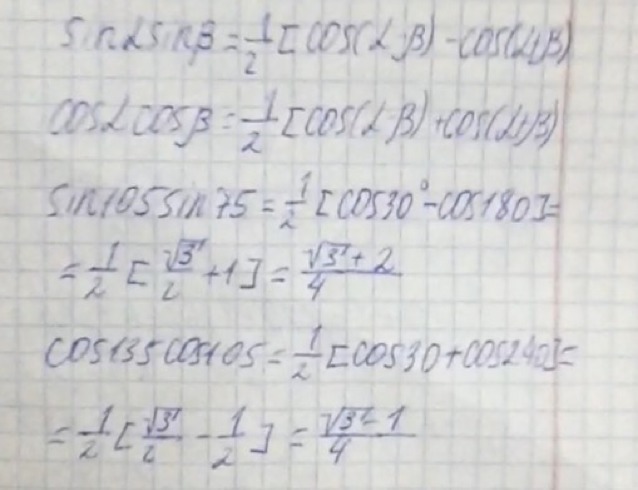 sinαsinβ = 1/2 [cos(α-β) - cos(α+β)
cosαcosβ = 1/2 [cos(α-β) + cos(α+β)]
sin105sin75 = 1/2 [cos30° - cos180] =
= 1/2 [√3/2 + 1] = (√3 + 2)/4
cos135cos105 = 1/2 [cos30 + cos240] =
= 1/2 [√3/2 - 1/2] = (√3 - 1)/4